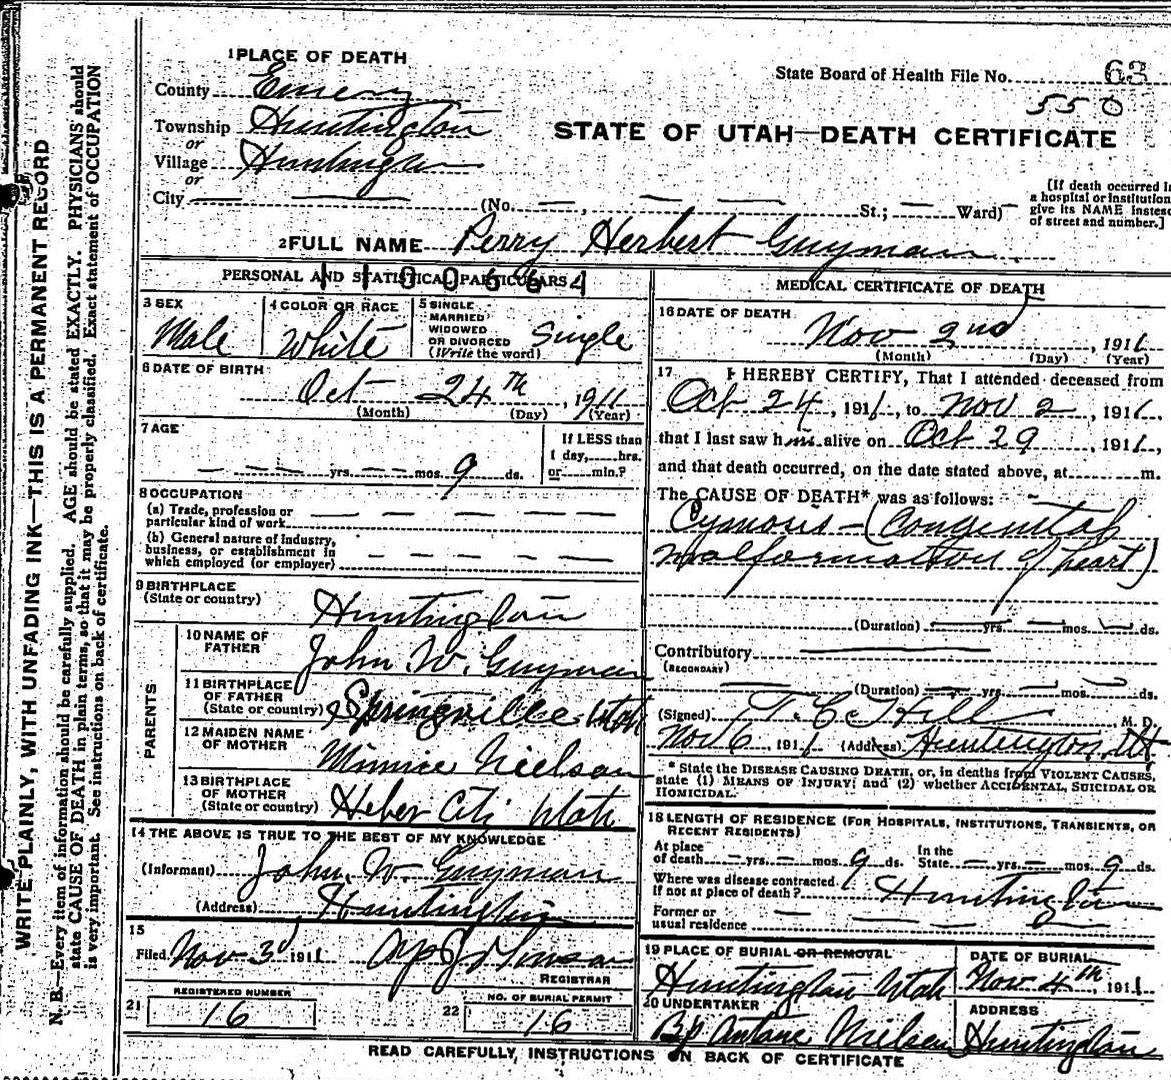 WRITE PLAINLY, WITH UNFADING INK—THIS IS A PERMANENT RECORD
N. B.—Every item of information should be carefully supplied. AGE should be stated EXACTLY. PHYSICIANS should
state CAUSE OF DEATH in plain terms, so that it may be properly classified. Exact statement of OCCUPATION
is very important. See instructions on back of certificate.
1 PLACE OF DEATH
County Emery
Township Huntington
or
Village Huntington
or
City
State Board of Health File No. 63
550
STATE OF UTAH—DEATH CERTIFICATE
(No. — , — — St.; — Ward)
[If death occurred in
a hospital or institution
give its NAME instead
of street and number.]
2 FULL NAME Perry Herbert Guymon
PERSONAL AND STATISTICAL PARTICULARS
1100564
3 SEX
Male
4 COLOR OR RACE
White
5 SINGLE
MARRIED
WIDOWED
OR DIVORCED
(Write the word)
Single
6 DATE OF BIRTH
Oct 24th, 1911
(Month) (Day) (Year)
7 AGE
— yrs. — mos. 9 ds.
If LESS than
1 day, hrs.
or min.?
8 OCCUPATION
(a) Trade, profession or
particular kind of work
(b) General nature of industry,
business, or establishment in
which employed (or employer)
9 BIRTHPLACE
(State or country)
Huntington
PARENTS
10 NAME OF
FATHER
John W. Guyman
11 BIRTHPLACE
OF FATHER
(State or country) Springville Utah
12 MAIDEN NAME
OF MOTHER
Minnie Nielson
13 BIRTHPLACE
OF MOTHER
(State or country) Heber City Utah
14 THE ABOVE IS TRUE TO THE BEST OF MY KNOWLEDGE
(Informant) John W. Guyman
(Address) Huntington
15
Filed Nov 3, 1911
REGISTRAR
21 REGISTERED NUMBER
16
22 NO. OF BURIAL PERMIT
16
MEDICAL CERTIFICATE OF DEATH
16 DATE OF DEATH
Nov 2nd, 1911
(Month) (Day) (Year)
17 I HEREBY CERTIFY, That I attended deceased from
Oct 24, 1911, to Nov 2, 1911,
that I last saw him alive on Oct 29, 1911,
and that death occurred, on the date stated above, at m.
The CAUSE OF DEATH* was as follows:
Cynosis – (Congenital
malformation of heart)
(Duration) — yrs. — mos. — ds.
Contributory
(SECONDARY)
(Duration) — yrs. — mos. — ds.
(Signed) T. C. Hill M. D.
Nov 6, 1911 (Address) Huntington, Ut
* State the DISEASE CAUSING DEATH, or, in deaths from VIOLENT CAUSES,
state (1) MEANS OF INJURY; and (2) whether ACCIDENTAL, SUICIDAL OR
HOMICIDAL.
18 LENGTH OF RESIDENCE (FOR HOSPITALS, INSTITUTIONS, TRANSIENTS, OR
RECENT RESIDENTS)
At place
of death — yrs. — mos. 9 ds.
In the
State — yrs. — mos. 9 ds.
Where was disease contracted
if not at place of death? Huntington
Former or
usual residence
19 PLACE OF BURIAL OR REMOVAL
Huntington Utah
DATE OF BURIAL
Nov 4th, 1911
20 UNDERTAKER
Nielsen
ADDRESS
Huntington
READ CAREFULLY, INSTRUCTIONS ON BACK OF CERTIFICATE